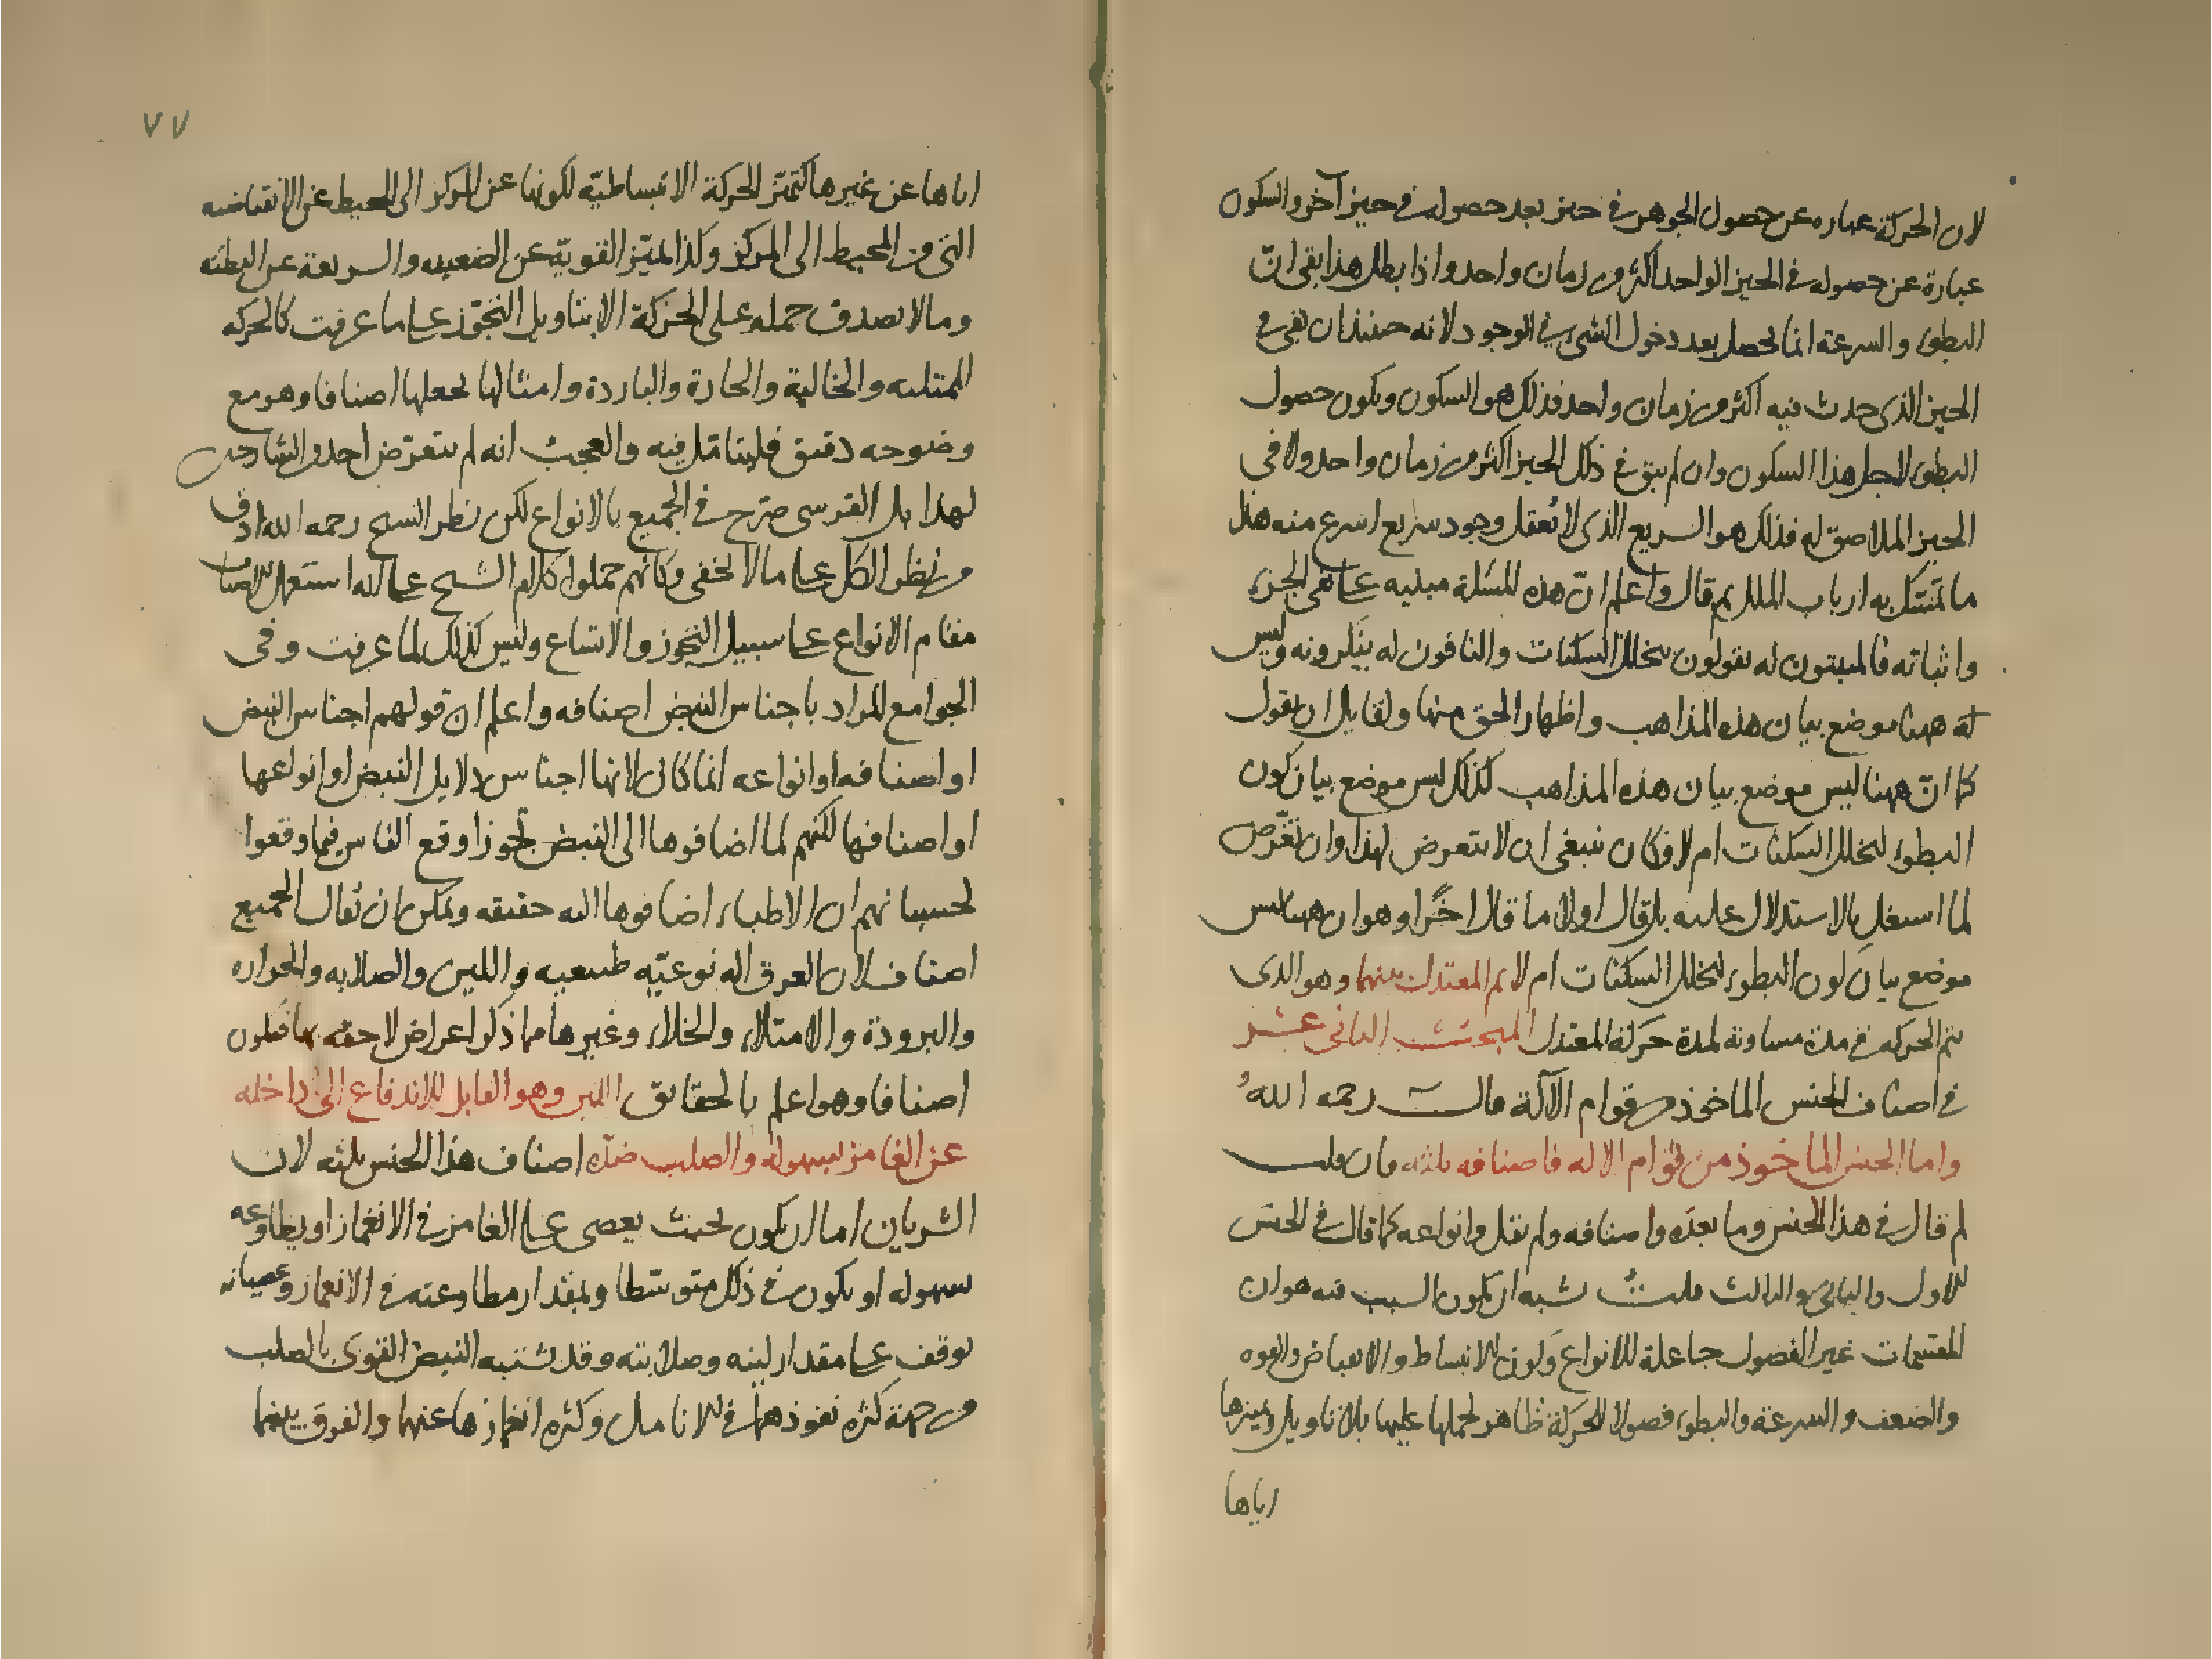 لان الحركة عباره عن حصول الجوهر في حيز بعد حصوله في حيز آخر والسكون
عبارة عن حصوله في الحيز الواحد اكثر من زمان واحد واذا بطل هذا بقى انّ
البطوء والسرعة انما يحصل بعد دخول الشىء في الوجود لانه حينئذ ان بقى في
الحيز الذى حدث فيه اكثر من زمان واحد فذلك هو السكون ويكون حصول
البطوء لاجل هذا السكون وان لم يبق في ذلك الحيز اكثر من زمان واحد ولا في
الحيز الملاصق له فذلك هو السريع الذى لا يُعقل وجود سريع اسرع منه هذا
ما تمسّك به ارباب الملل ثم قال واعلم انّ هذه المسئلة مبنيه على نفى الجزء
واثباته فالمثبتون له يقولون بتخلل السكنات والنافون له ينكرونه وليس
له ههنا موضع بيان هذه المذاهب واظهار الحق منها ولقايل ان يقول
كما انّ ههنا ليس موضع بيان هذه المذاهب كذلك ليس موضع بيان كون
البطوء لتخلل السكنات ام لا فكان ينبغى ان لا يتعرض لهذا وان تعّرض
لما اشتغل بالاستدلال عليه بل قال اولا ما قال اخرًا وهو ان ههنا ليس
موضع بيان كون البطوء لتخلل السكنات ام لا ثم المعتدل بينهما وهو الذى
يتم الحركه في مدة مساوية لمدة حركة المعتدل المبحث الثانى عشر
في اصناف الجنس الماخوذ من قوام الآلة قال رحمه الله
واما الجنس الماخوذ من قوام الاله فاصنافه ثلثه فان قلت
لم قال في هذا الجنس وما بعده واصنافه ولم يقل وانواعه كما قال في الجنس
الاول والثانى والثالث قلتُ يشبه ان يكون السبب فيه هو ان
المقسمات غير الفصول جاعلة للانواع وكون الانبساط والانقباض والقوه
والضعف والسرعة والبطوء فصولا للحركة ظاهر لحملها عليها بلا تاويل وتميزها
اياها
٧٧
اياها عن غيرها كتميّز الحركة الانبساطيّه لكونها عن المركز الى المحيط عن الانقباضيه
التى من المحيط الى المركز وكذا تميّز القويّة عن الضعيفه والسريعة عن البطئه
وما لا يصدق حمله على الحركة الا بتاويل التجّوز على ما عرفت كالحركه
الممتلئه والخالية والحارة والباردة وامثالها يجعلها اصنافا وهو مع
وضوحه دقيق فليتامّل فيه والعجب انه لم يتعرّض احد من الشارحين
لهذا بل القرشى صرّح في الجميع بالانواع لكن نظر الشيخ رحمه الله ادق
من نظر الكل على ما لا يخفى وكانهم حملوا كلام الشيخ على انه استعمل الاصناف
مقام الانواع على سبيل التجوز والاتساع وليس كذلك لما عرفت وفى
الجوامع المراد باجناس النبض اصنافه واعلم ان قولهم اجناس النبض
او اصنافه او انواعه انما كان لانها اجناس دلايل النبض او انواعها
او اصنافها لكنهم لما اضافوها الى النبض تجوزا وقع الناس فيما وقعوا
لحسبانهم ان الاطباء اضافوها اليه حقيقه ويمكن ان يقال الجميع
اصناف لان العرق اله نوعيّه طبيعيه واللين والصلابه والحراره
والبرودة والامتلاء والخلاء وغيرها مما ذكر اعراض لاحقه بها فيكون
اصنافا وهو اعلم بالحقائق اللين وهو القابل للاندفاع الى داخله
عن الغامز بسهولة والصلب ضدّه اصناف هذا الجنس ثلثه لان
الشريان اما ان يكون بحيث يعصى على الغامز في الانغماز او يطاوعه
بسهوله او يكون في ذلك متوسّطا وبمقدار مطاوعته في الانغماز وعصيانه
يوقف على مقدار لينه وصلابته وقد يشتبه النبض القوى بالصلب
من جهة كثره نفوذهما في الانامل وكثره انغمازها عنهما والفرق بينهما